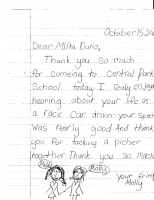 October 15
Dear Milka Duno,
Thank you so much
for comeing to Central Park
School today. I realy enjoyed
hearing about your life as
a race car driver. your speech
was realy good And thank
you for tacking a picher
together Thank you so much
your frind
Molly